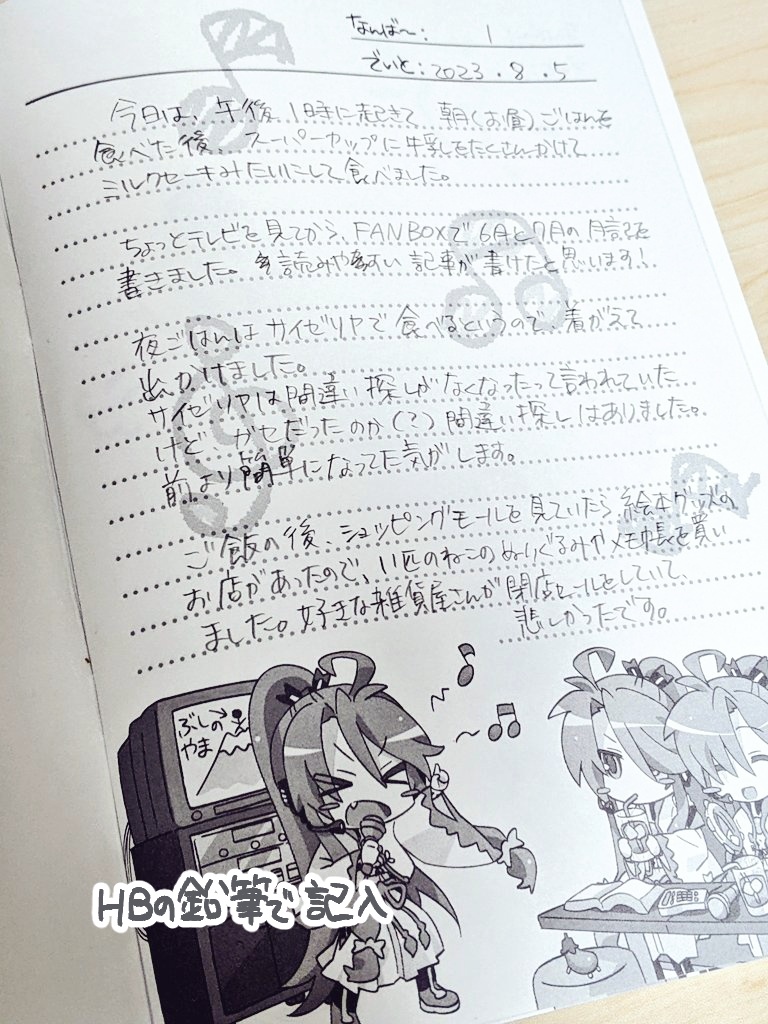 なんば〜: 1
でいと:2023.8.5
今日は、午後 1時に起きて 朝(お昼)ごはんを
食べた後、スーパーカップに牛乳をたくさんかけて
ミルクセーキみたいにして食べました。
ちょっとテレビを見てから、FANBOXで6月と7月の月記を
書きました。読みやすい 記事が書けたと思います!
夜ごはんはサイゼリヤで食べるというので、着がえて
出かけました。
サイゼリヤは間違い探しがなくなったって言われていた
けど、ガセだったのか(?)間違い探しはありました。
前より簡単になってた気がします。
ご飯の後、ショッピングモールを見ていたら絵本グッズの
お店があったので、11匹のねこのぬいぐるみやメモ帳を買い
ました。好きな雑貨屋さんが閉店セールをしていて、
悲しかったです。
ぶしの
やま
HBの鉛筆で記入